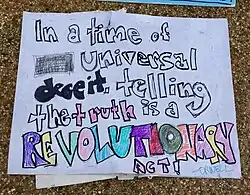 In a time of
universal
deceit, telling
the truth is a
REVOLUTIONARY
ACT!